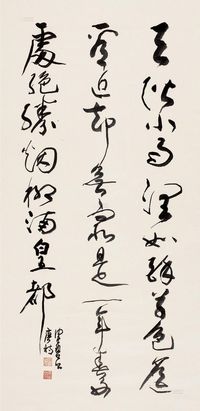 天街小雨潤如酥草色遥
看近却無最是一年春好
處絶勝烟柳滿皇都